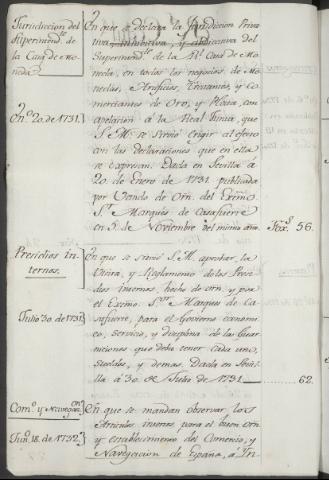 Jurisdiccion del
Superintend.te de
la Casa de Mo-
neda.
En.o 20. de 1731.
En que se declara la Jurisdiccion Priva-
tiva, inhibitiva, y del
Superintend.te de la R.l Casa de Mo-
neda, en todos los negocios de Mo-
nedas, Artifices, Tratantes, y Co-
merciantes de Oro, y Plata, con
apelacion à la Real Junta, que
S. M. se sirvió Erigir al efecto
con las declaraciones que en ella
se expresan. Dada en Sevilla à
20. de Enero de 1731. publicada
por Vando de orn. del Exmo.
S.r Marqués de Casafuerte
en 5. de Noviembre del mismo año.
Fox.s 56.
Presidios in-
ternos.
Julio 30. de 1731.
En que se sirvió S. M. aprobar, la
Visita, y Reglamento de los Presi-
dios internos, hecho de orn, y por
el Exmo. S.or Marqués de Ca-
safuerte, para el Govierno econom-
ico, servicio, y disciplina de las Guar-
niciones que debia tener cada uno,
sueldos, y demas. Dada en Sevi-
lla à 30. de Julio de 1731.
62.
Com.o y Navegac.on
Jun.o 18. de 1732.
En que se mandan observar los
Articulos insertos, para el buen orn.
y establecimiento del Comercio, y
Navegacion de España, à In-